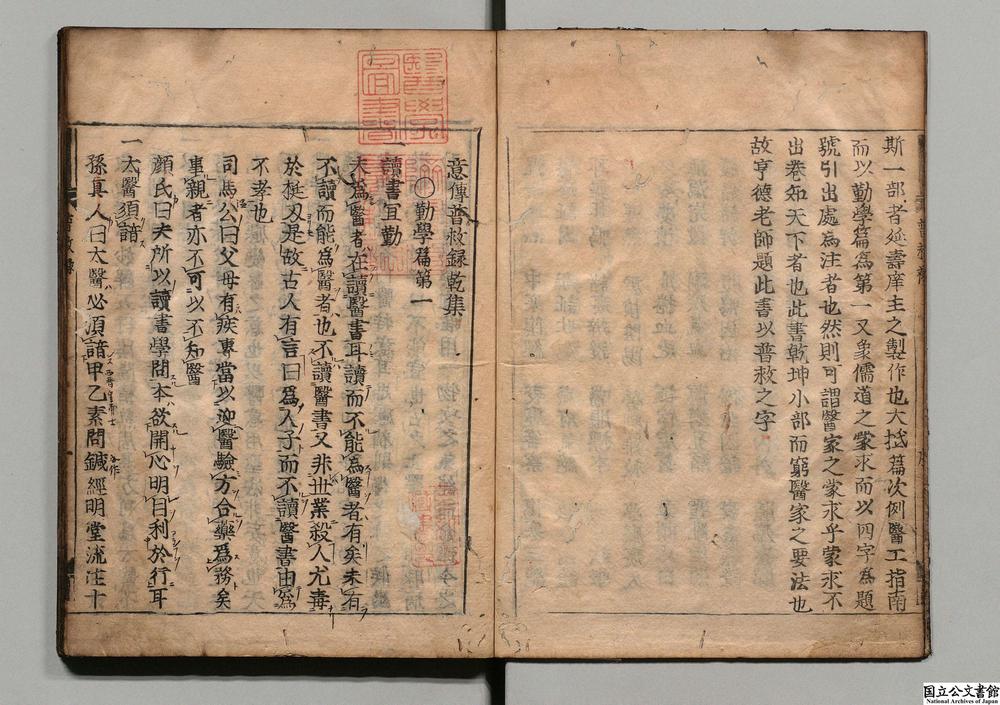 斯一部者延壽庠主之製作也大抵篇次例醫工指南
而以勤學篇為第一又象儒道之蒙求而以四字為題
號引出處為注者也然則可謂醫家之蒙求乎蒙求不
出卷知天下者也此書乾坤小部而窮醫家之要法也
故亨德老師題此書以普救之字
意傳普救録乾集
○勤學篇第一
一讀書宜勤
夫為醫者在讀醫書耳讀而不能為醫者有矣未有
不讀而能為醫者也不讀醫書又非世業殺人尤毒
於梃刃是故古人有言曰為人子而不讀醫書由為
不孝也
司馬公曰父母有疾專當以迎醫驗方合藥為務矣
事親者亦不可以不知醫
顔氏曰夫所以讀書學問本欲開心明目利於行耳
一太醫須諳
孫真人曰大醫必須諳甲乙素問鍼經明堂流注十
国立公文書館
National Archives of Japan